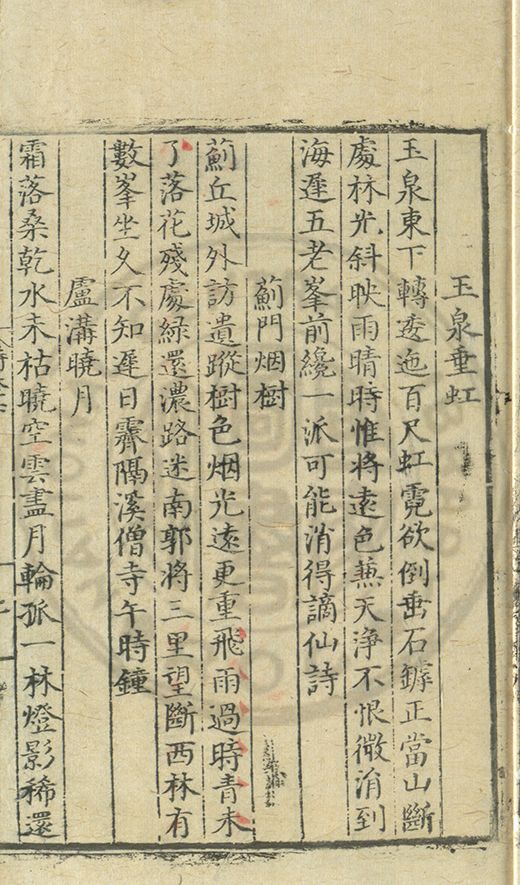 玉泉垂虹
玉泉東下轉逶迤百尺虹霓欲倒垂石罅正當山斷
處林光斜映雨晴時惟將遠色蕪天淨不恨微涓到
海遲五老峯前纔一派可能消得謫仙詩
薊門烟樹
薊丘城外訪遺蹤樹色烟光遠更重飛雨過時青未
了落花殘處綠還濃路迷南郭將三里望斷西林有
數峯坐久不知遲日霽隔溪僧寺午時鐘
盧溝曉月
霜落桑乾水未枯曉空雲盡月輪孤一林燈影稀還